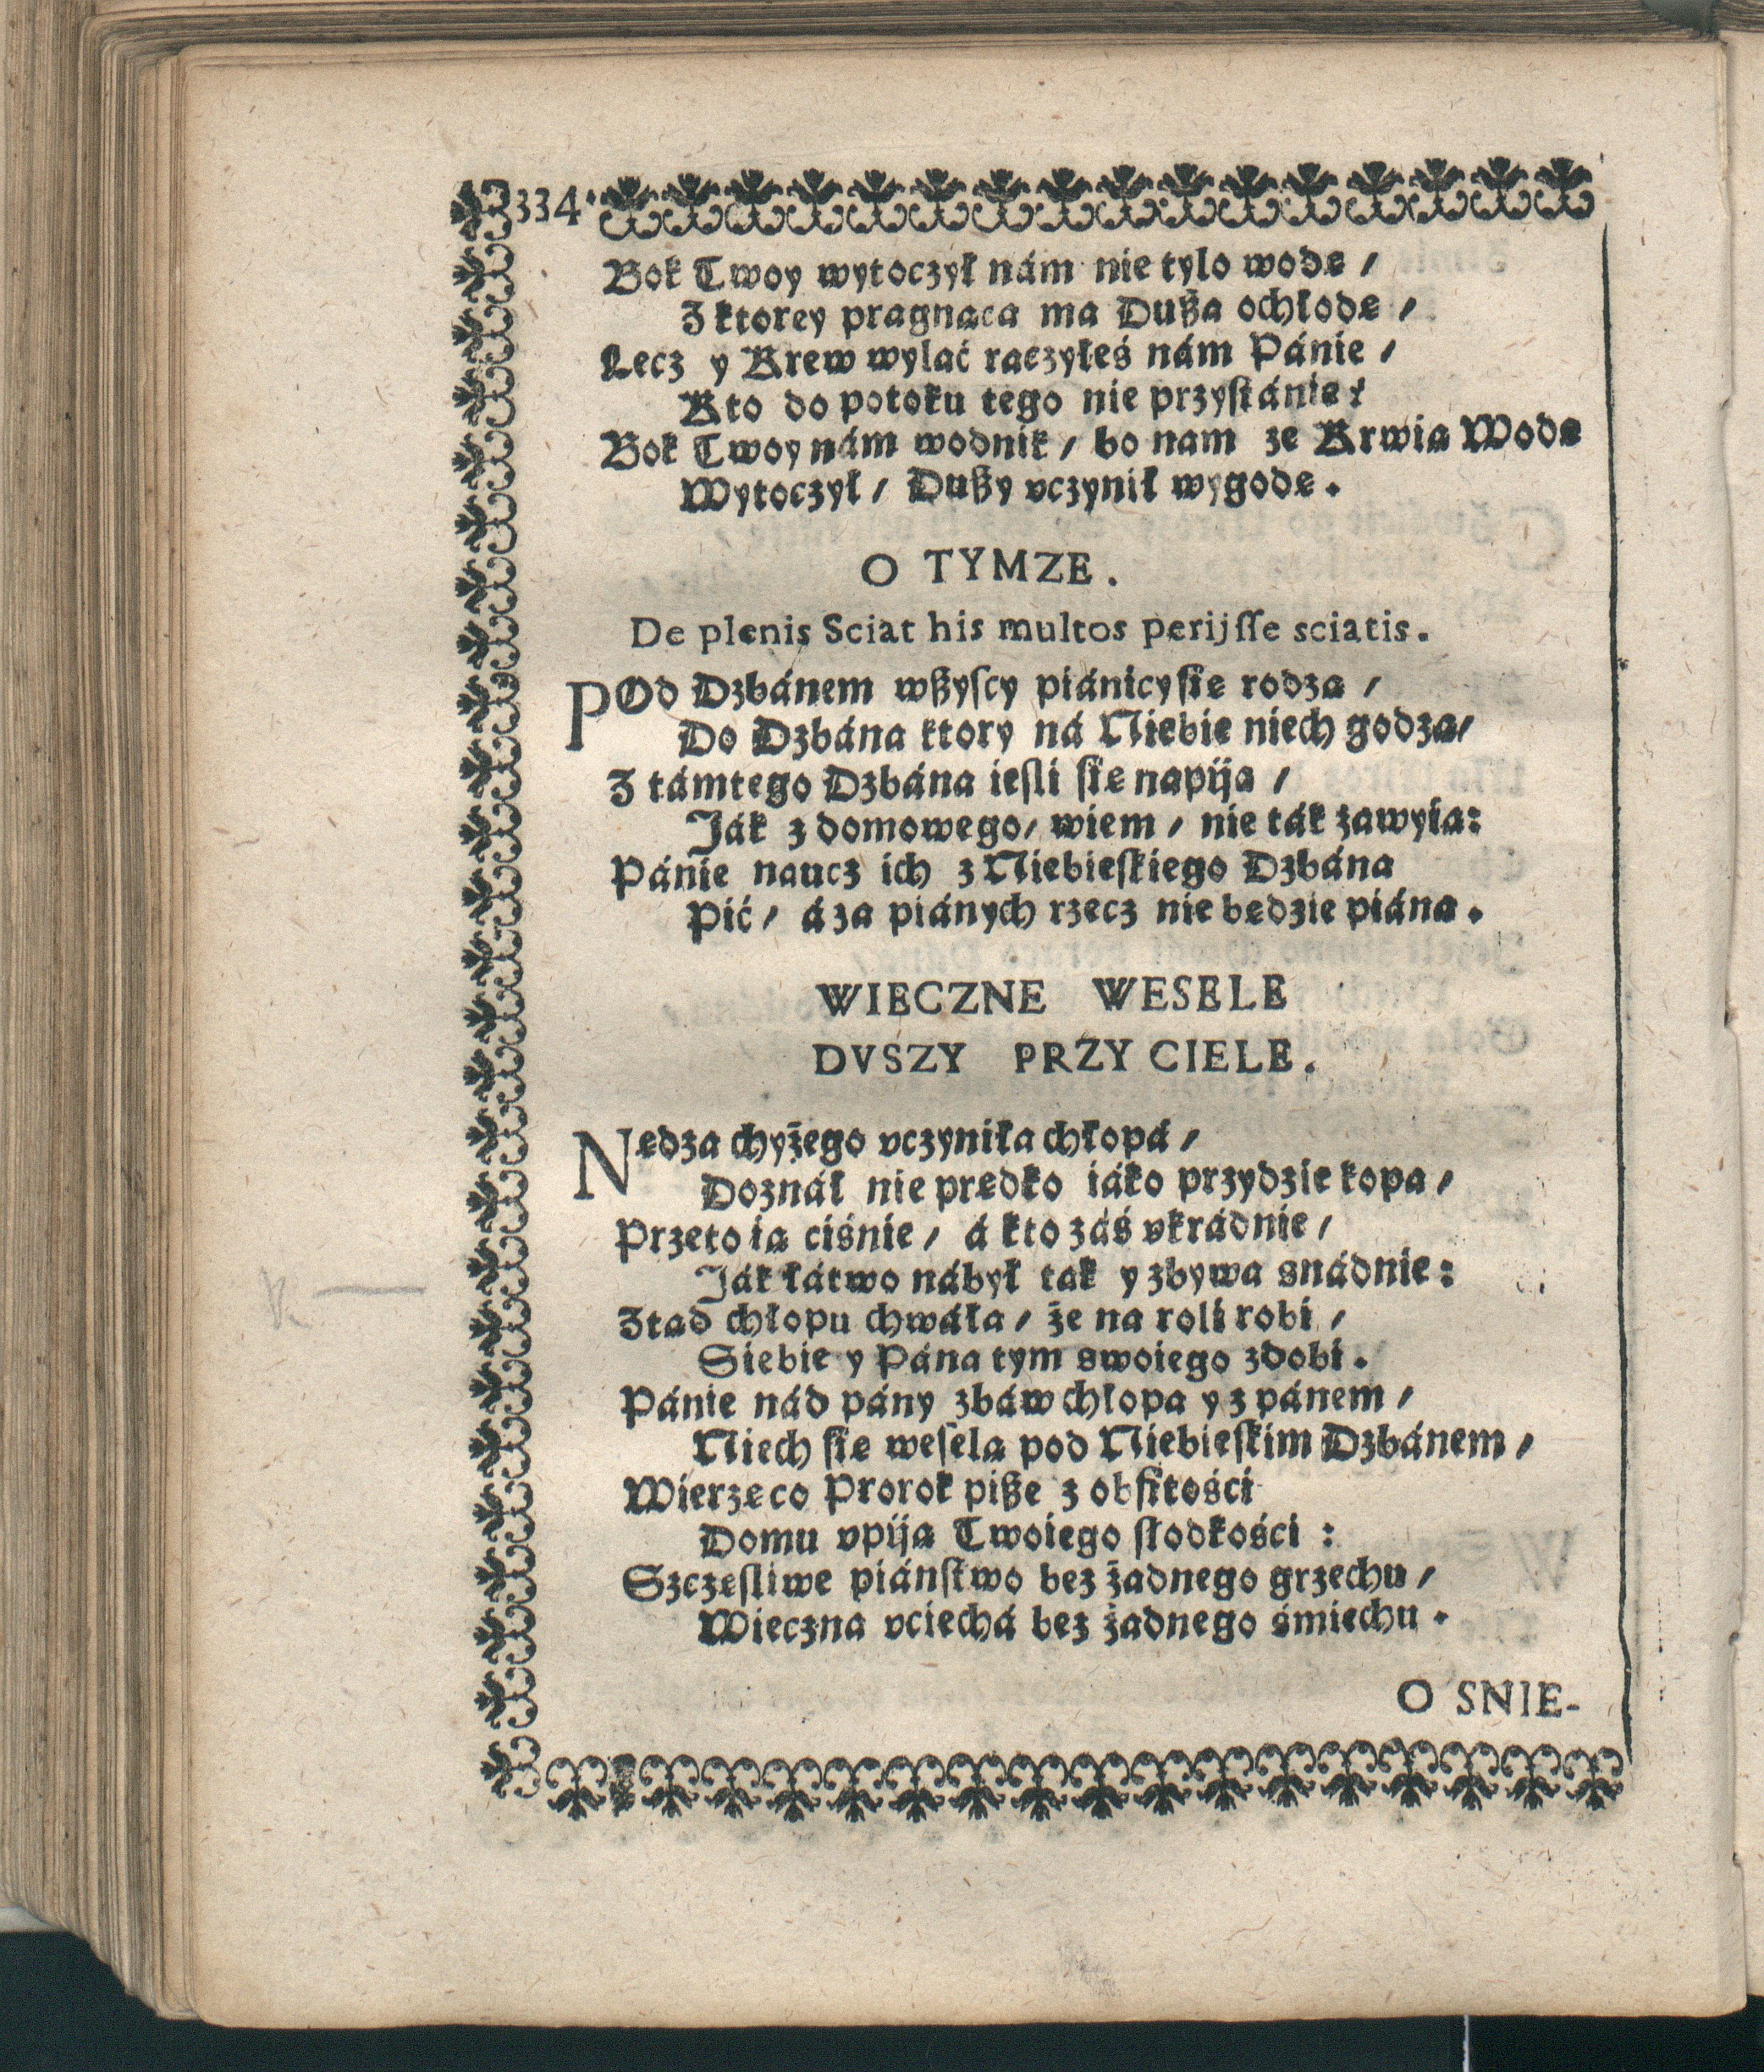 334.
Bok Twoy wytoczył nám nie tylo wodę /
Z ktorey pragnąca ma Dußa ochłodę /
Lecz y Krew wylać raczyłeś nám Pánie /
Kto do potoku tego nie przyſtánie?
Bok Twoy nám wodnik / bo nam ze Krwią Wodę
Wytoczył / Dußy vczynił wygodę.
O TYMZE.
De plenis Sciat his multos perijſſe sciatis.
POd Dzbánem wßyſcy piánicy ſię rodzą /
Do Dzbána ktory ná Niebie niech godzą /
Z támtego Dzbána ieſli ſię napiją /
Ják z domowego / wiem / nie ták záwyią:
Pánie naucz ich z Niebieſkiego Dzbána
Pić / á za piánych rzecz nie będzie piána.
WIECZNE WESELE
DVSZY PRZY CIELE.
Nędza chyżego vczyniła chłopá /
Doznáł nie prędko iáko przydzie kopa /
Przeto ią ciśnie / á kto záś vkrádnie /
Ják łátwo nábył tak y zbywa snádnie:
Ztąd chłopu chwáła / że na roli robi /
Siebie y Pána tym swoiego zdobi.
Pánie nád pány zbáw chłopa y z pánem /
Niech ſię weſelą pod Niebieſkim Dzbánem /
Wierzę co Prorok piße z obfitości
Domu vpiją Twoiego ſłodkości :
Szczęſliwe piánſtwo bez żadnego grzechu /
Wieczna vciechá bez żadnego śmiechu.
O SNIE-